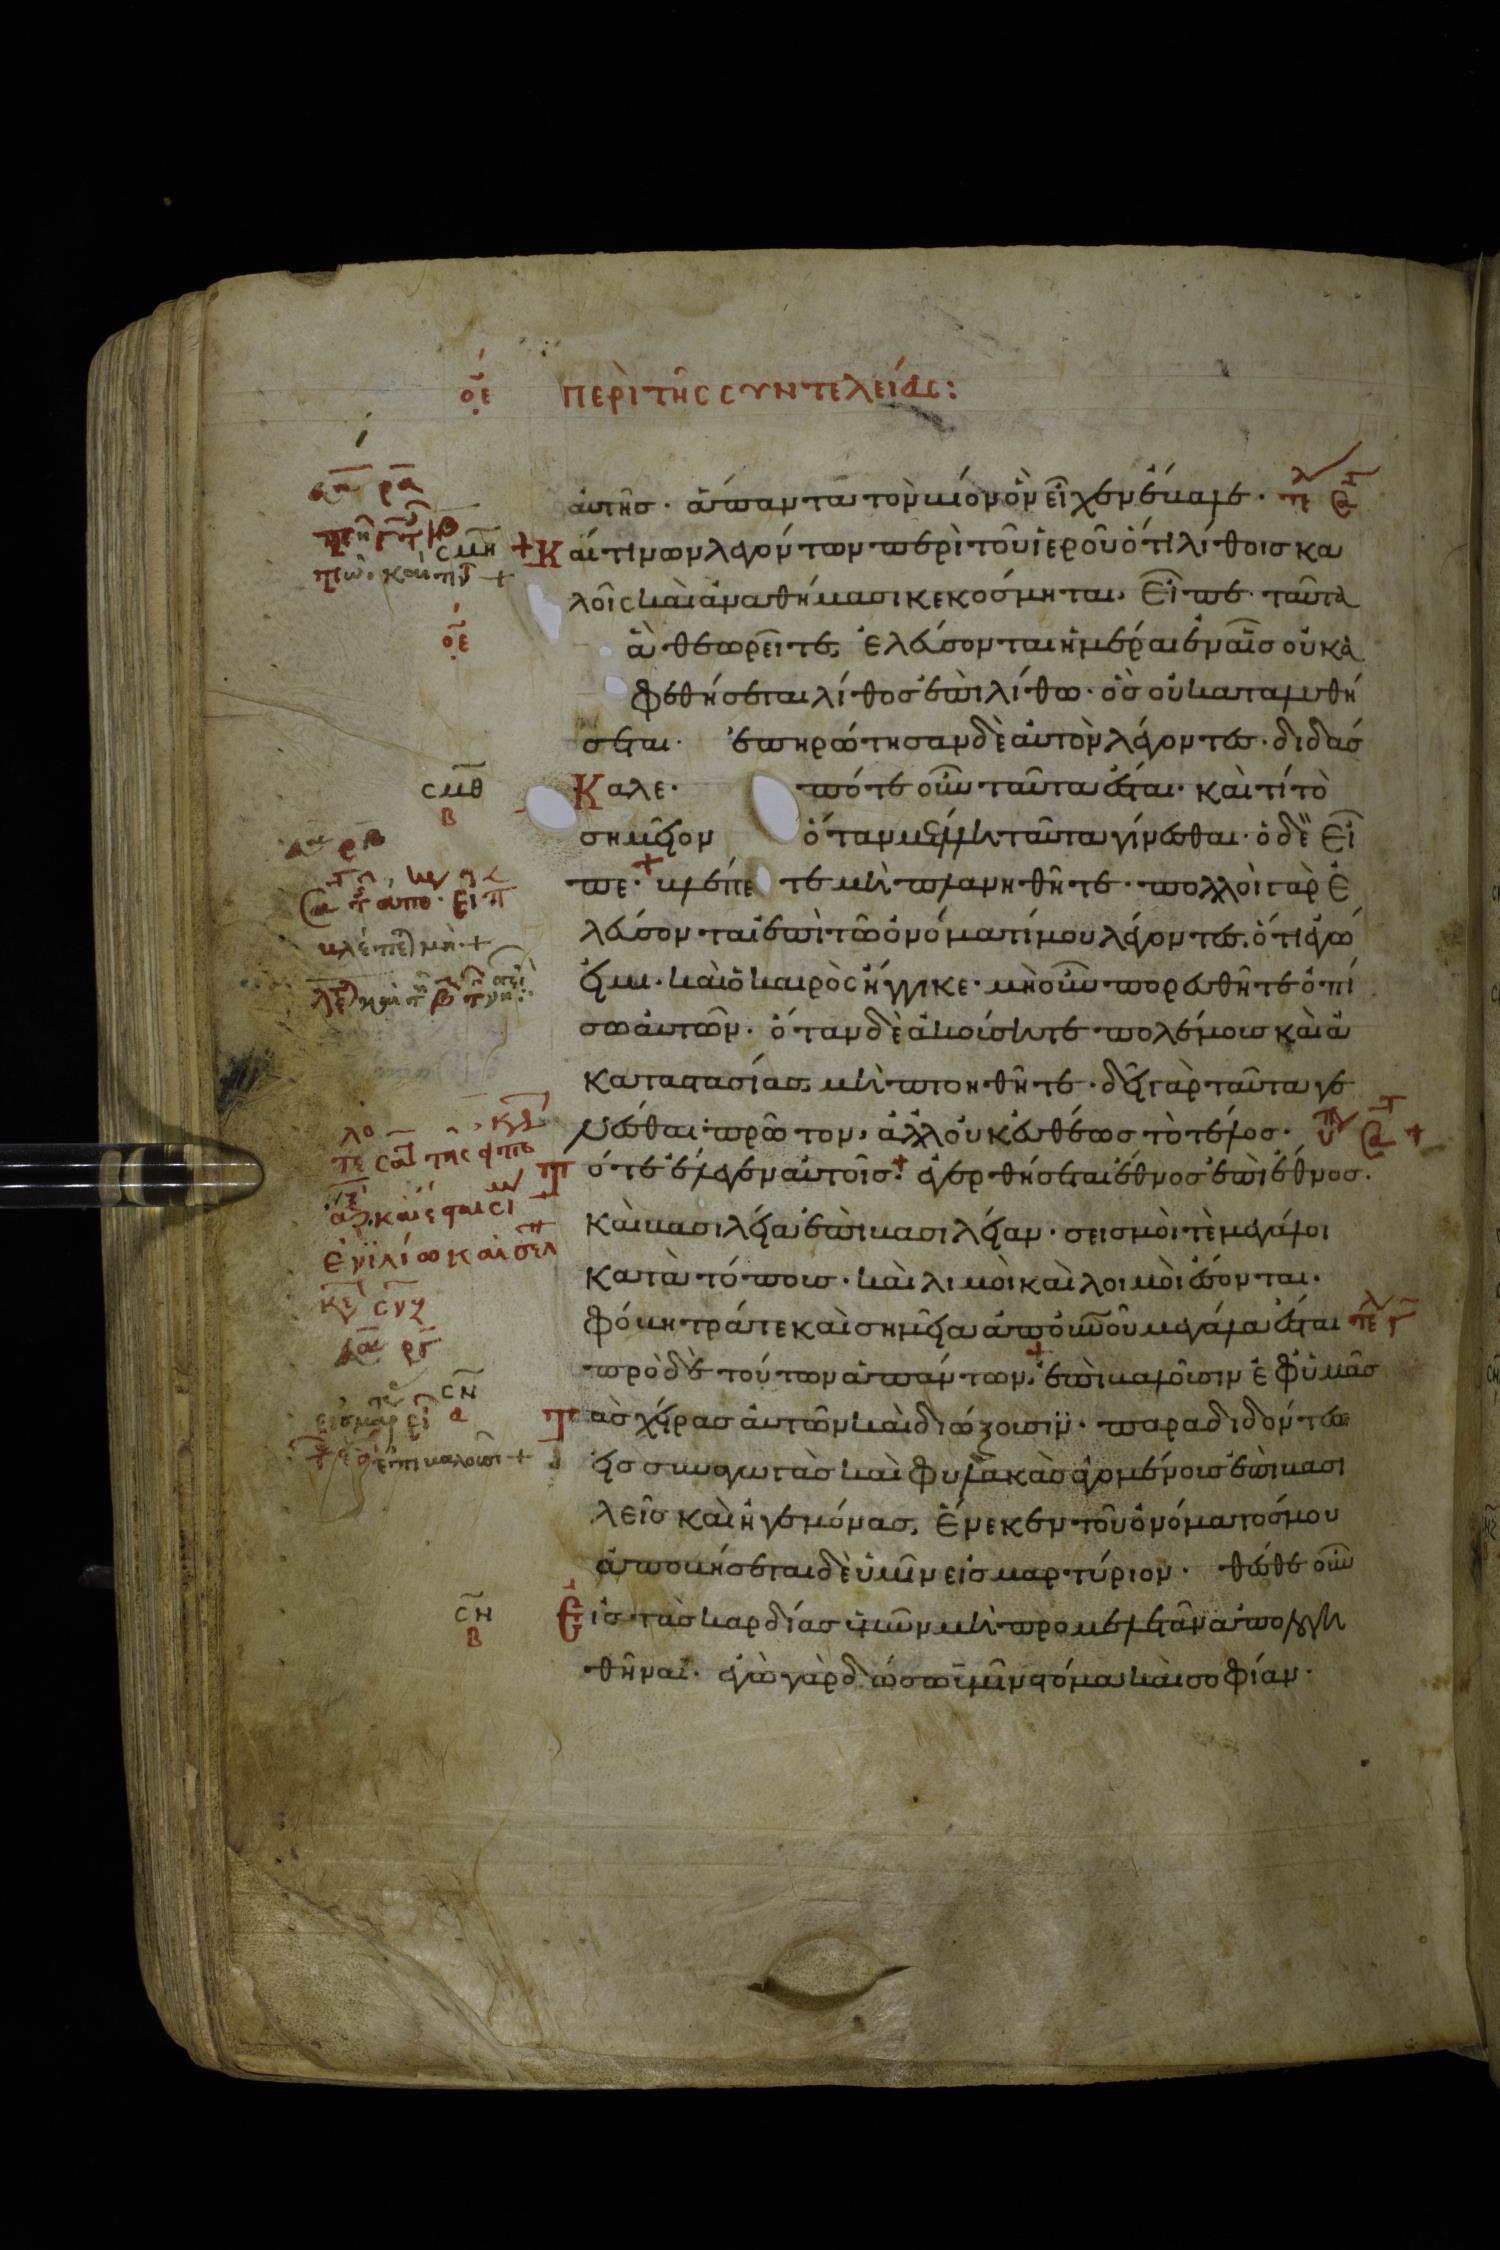 οε περὶ τῆς συντελείας:
αὐτῆσ· ἅπαντα τὸν βίον ὃν εἶχεν ἔβαλε·
Καί τινων λεγόντων περὶ τοῦ ἱεροῦ ὅτι λίθοισ κα
λοῖς καὶ ἀναθήμασι κεκόσμηται, εἶπε· ταῦτα
ἃ θεωρεῖτε, ἐλεύσονται ἡμέραι ἐν αἷσ οὐκ ἀ
φεθήσεται λίθοσ ἐπὶ λίθω· ὃσ οὐ καταλυθή
σεται· ἐπηρώτησαν δὲ αὐτὸν λέγοντεσ· διδάσ
Καλε· πότε οὖν ταῦτα ἔσται· καὶ τί τὸ
σημεῖον ὅταν μέλλη ταῦτα γίνεσθαι· ὁ δὲ εἶ
πε· βλέπετε μὴ πλανηθῆτε· πολλοὶ γὰρ ἐ
λεύσονται ἐπὶ τῶ ὀνόματί μου λέγοντεσ· ὅτι ἐγώ
εἰμι· καὶ ὁ καιρὸς ἤγγικε· μὴ οὖν πορευθῆτε ὀπί
σω αὐτῶν· ὅταν δὲ ἀκούσητε πολέμουσ καὶ ἀ
καταστασίασ, μὴ πτοηθῆτε· δεῖ γὰρ ταῦτα γε
νέσθαι πρῶτον, ἀλλ οὐκ εὐθέωσ τὸ τέλοσ·
Τότε ἔλεγεν αὐτοῖσ· ἐγερθήσεται ἔθνοσ ἐπὶ ἔθνοσ·
καὶ βασιλεία ἐπὶ βασιλείαν· σεισμοί τὲ μεγάλοι
κατὰ τόπουσ· καὶ λιμοὶ καὶ λοιμοὶ ἔσονται·
φόβητρά τε καὶ σημεῖα ἀπ οὐνοῦ μεγάλα ἔσται
πρὸ δὲ τούτων ἁπάντων, ἐπιβαλοῦσιν ἐφ ὑμᾶσ
Τὰσ χεῖρασ αὐτῶν καὶ διώξουσιν· παραδιδόντεσ
εἰσ συναγωγὰσ καὶ φυλακὰσ ἀγομένουσ ἐπὶ βασι
λεῖσ καὶ ἡγεμόνασ, ἕνεκεν τοῦ ὀνόματόσ μου
ἀποβήσεται δὲ ὑμῖν εἰσ μαρτύριον· θέσθε οὖν
Εἰσ τὰσ καρδίασ ὑμῶν μὴ προμελετᾶν ἀπολογη
θῆναι· ἐγὼ γὰρ δώσω ὑμῖν στόμα καὶ σοφίαν·
σμη
οε
σμθ
β
σν
α
σν
β